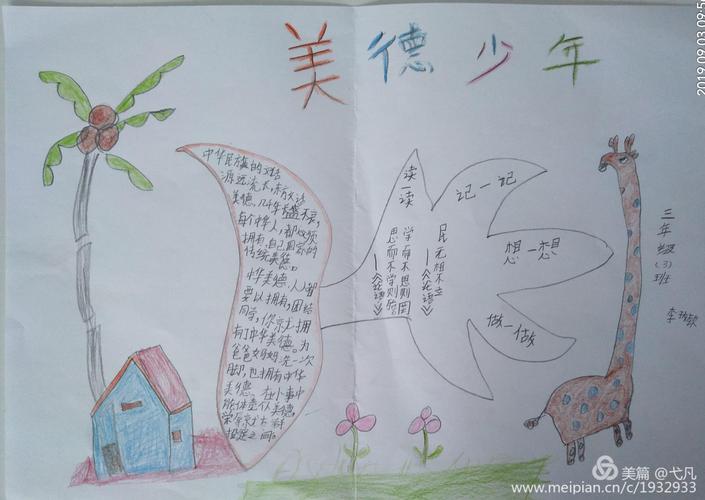 美德少年
中华民族的
源远流长,
美德,几千年盛不衰,
每个华人,都必须
拥有,自己国家的
传统美德。
中华美德,人人都
要以拥有,团结
同学,你就拥
有了中华美德。为
爸爸妈妈洗一次
脚,也拥有中华
美德。在小事中
美德,
读一读
学而不思则罔
思而不学则殆。
——《论语》
民无信不立
——《论语》
记一记
想一想
做一做
三年级(3)班
李
2019.09.03 09:5
美篇 @弋凡
www.meipian.cn/c/1932933